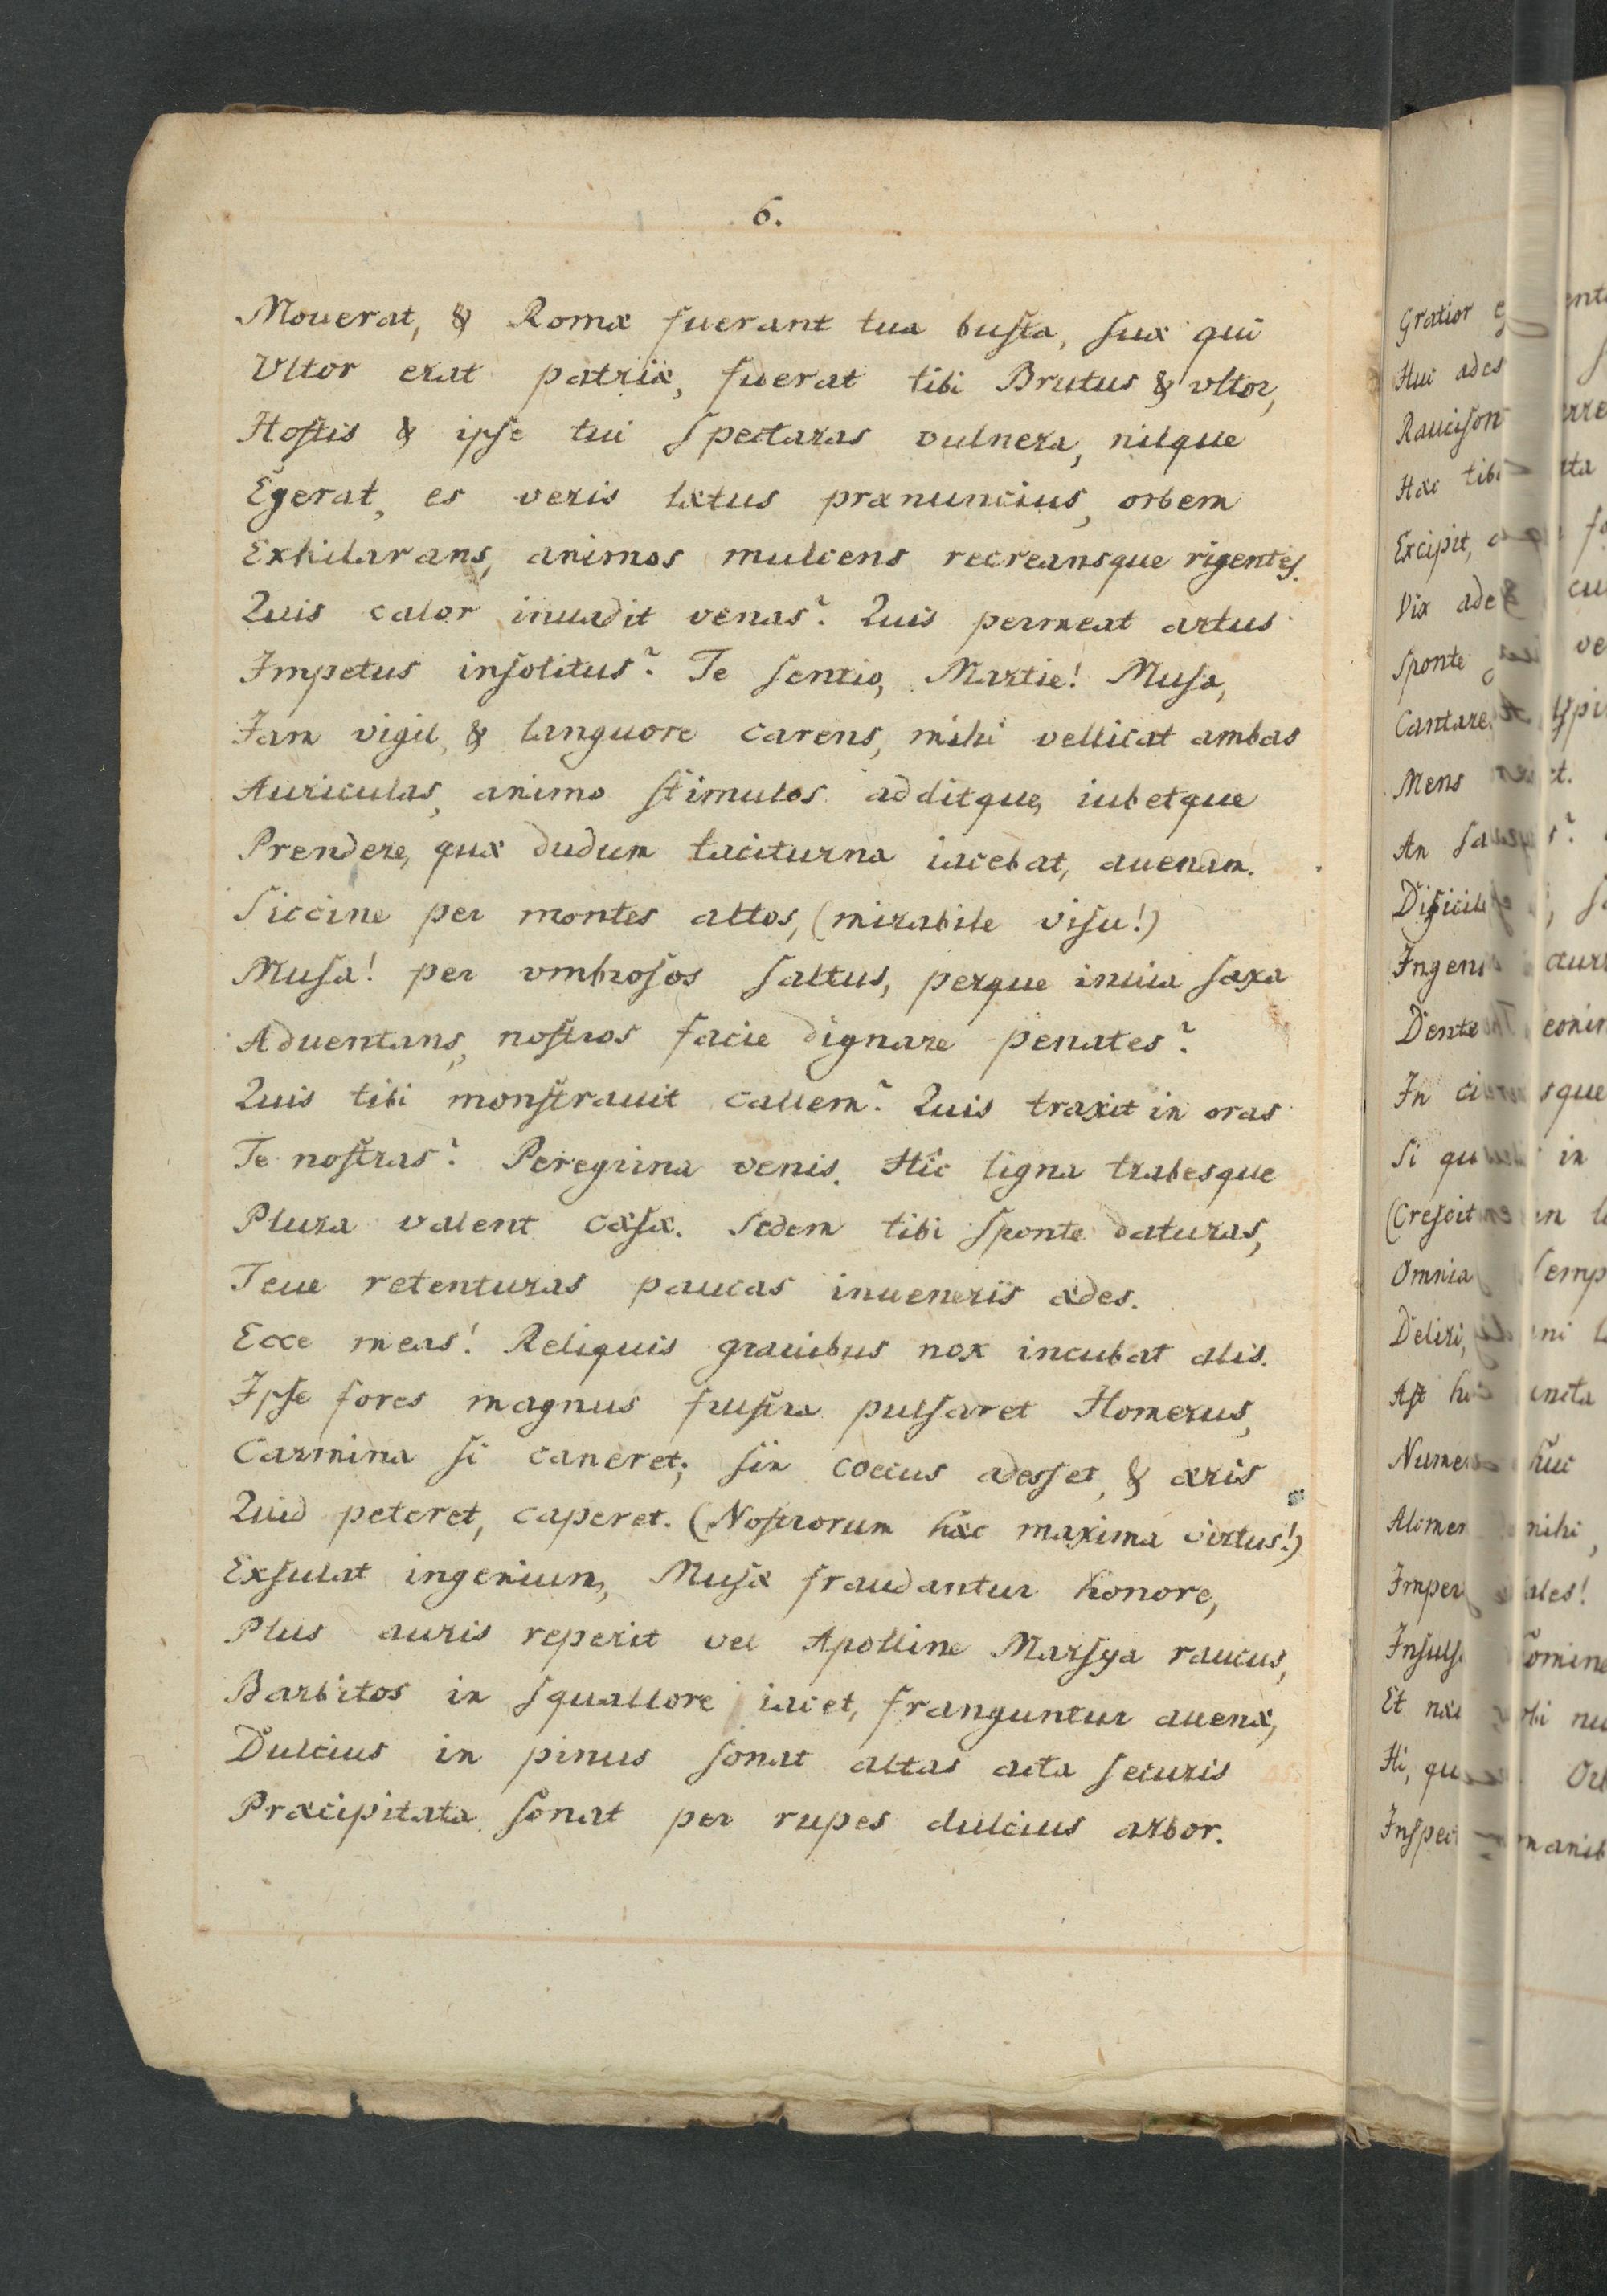 6.
Mouerat, & Romæ fuerant tua busta, suæ qui
Vltor erat patriæ, fuerat tibi Brutus & vltor,
Hostis & ipse tui spectaras vulnera, nilque
Egerat, es veris lætus prænuncius, orbem
Exhilarans, animos mulcens recreansque rigentes.
Quis calor inuadit venas? Quis permeat artus
Impetus insolitus? Te sentio, Martie! Musa,
Iam vigil, & languore carens, mihi vellicat ambas
Auriculas, animo stimulos additque, iubetque
Prendere, quæ dudum taciturna iacebat, auenam.
Siccine per montes altos, (mirabile visu!)
Musa! per vmbrosos saltus, perque inuia saxa
Aduentans, nostros facie dignare penates?
Quis tibi monstrauit callem? Quis traxit in oras
Te nostras? Peregrina venis. Hic ligna trabesque
Plura valent cæsæ. Sedem tibi sponte daturas,
Teue retenturas paucas inueneris ædes.
Ecce meas! Reliquis grauibus nox incubat alis.
Ipse fores magnus frustra pulsaret Homerus,
Carmina si caneret; sin coecus adesset, & æris
Quid peteret, caperet. (Nostrorum hæc maxima virtus!)
Exsulat ingenium, Musæ fraudantur honore,
Plus auris reperit vel Apolline Marsya raucus,
Barbitos in squallore iacet, franguntur auenæ,
Dulcius in pinus sonat altas acta securis
Præcipitata sonat per rupes dulcius arbor.
Gratior
Huc ades
Hæc
Excipit,
Vix
Sponte
Mens
An
In
Si in
Omnia
Deliri,
Ast
huc
mihi,
Et
Hi,